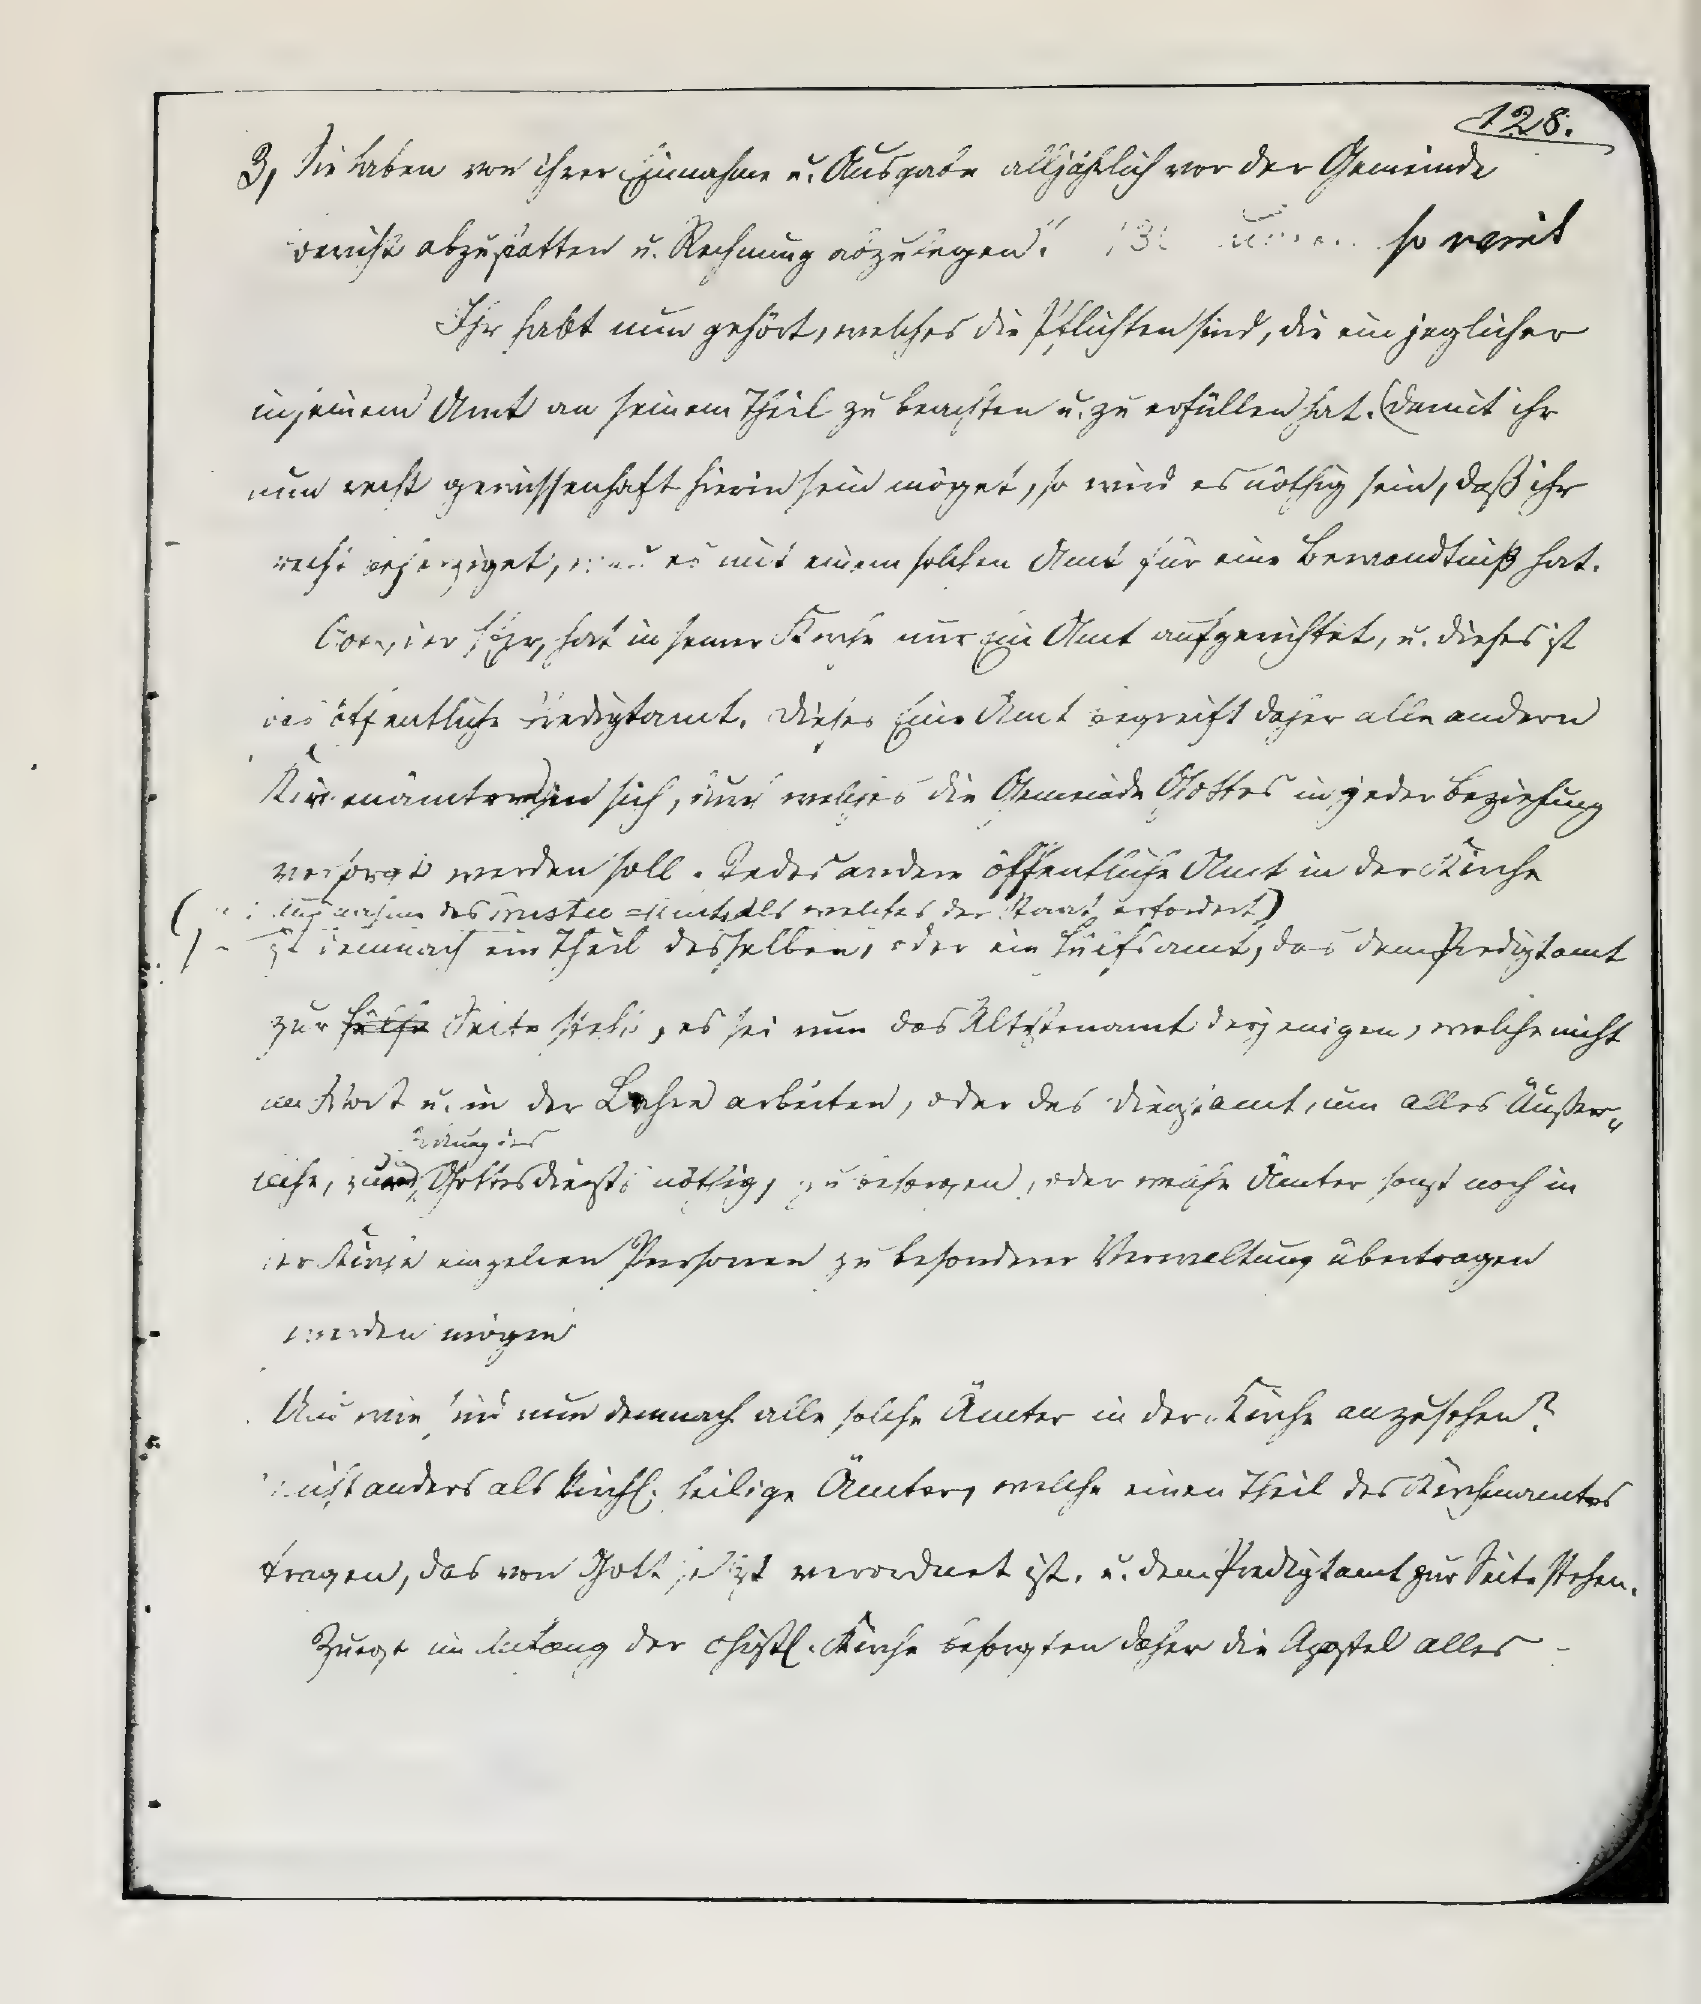 128.
3, Sie haben von ihrer Einnahme u. Ausgabe alljährlich vor der Gemeinde
Bericht abzustatten u. Rechnung abzulegen. so weit
Ihr habt nun gehört, welches die Pflichten sind, die ein jeglicher
in seinem Amt an seinem Theil zu beachten u. zu erfüllen hat. (Damit ihr
nun recht gewissenhaft hierin sein möget, so wird es nöthig sein, daß ihr
recht beherziget, was es mit einem solchen Amt für eine Bewandtniß hat.
Gott, der HErr, hat in seiner Kirche nur Ein Amt aufgerichtet, u. dieses ist
das öffentliche Predigtamt. Dieses Eine Amt begreift daher alle andern
Kirchenämter in sich, durch welches die Gemeinde Gottes in jeder Beziehung
versorgt werden soll. Jedes andere öffentliche Amt in der Kirche
( mit Ausnahme des Trustee-Amts, als welches der Staat erfordert)
ist demnach ein Theil desselben, oder ein Hülfsamt, das dem Predigtamt
zur Hülfe Seite steht, es sei nun das Ältestenamt derjenigen, welche nicht
im Wort u. in der Lehre arbeiten, oder das Dienstamt, um alles Äußer-
liche, zur Gottesdiensts nöthig, zu besorgen, oder welche Ämter sonst noch in
der Kirche einzelnen Personen zu besonderer Verwaltung übertragen
werden mögen
Und wie sind nun demnach alle solche Ämter in der Kirche anzusehen?
Nicht anders als kirchl. heilige Ämter, welche einen Theil des Kirchenamtes
tragen, das von Gott selbst verordnet ist, u. dem Predigtamt zur Seite stehen.
Zuerst im Anfang der christl. Kirche besorgten daher die Apostel alles